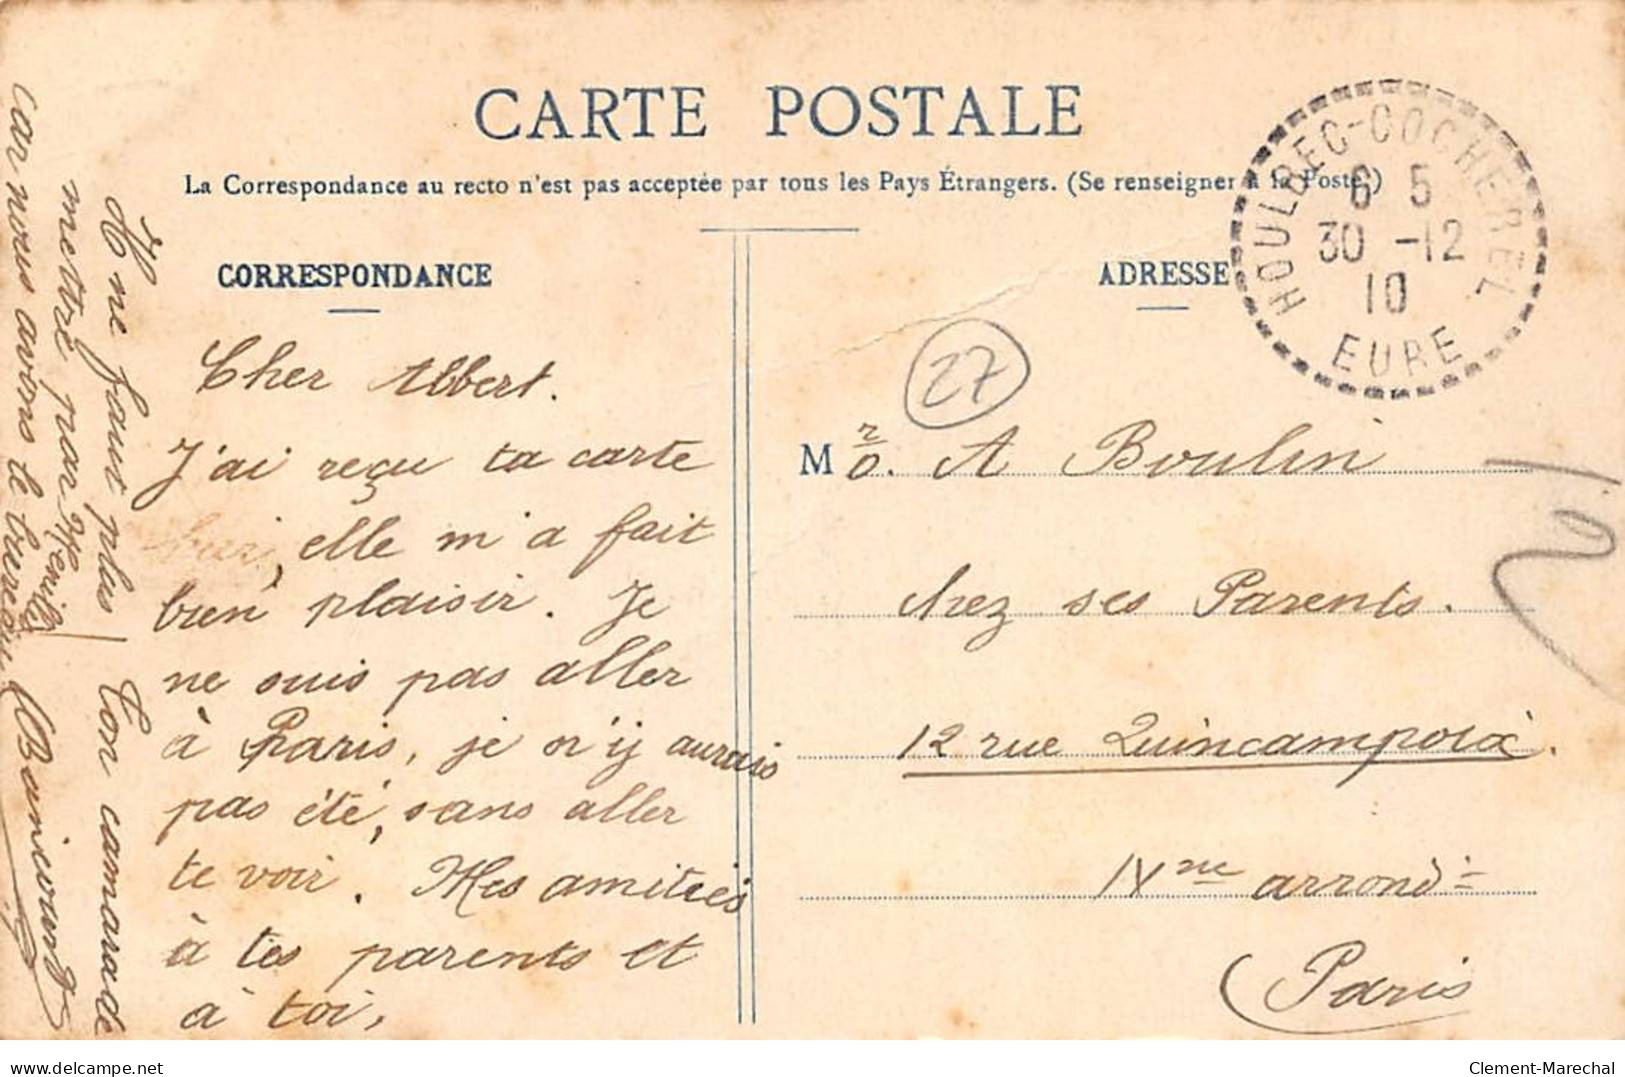 CARTE POSTALE
La Correspondance au recto n'est pas acceptée par tous les Pays Étrangers. (Se renseigner à la Poste.)
CORRESPONDANCE
Cher Albert.
J'ai reçu ta carte
hier, elle m'a fait
bien plaisir. Je
ne suis pas aller
à Paris, je n'y aurais
pas été, sans aller
te voir. Mes amitiés
à tes parents et
à toi,
Il ne faut plus
mettre par Menilles
car nous avons le bureau
Ton camarade
ADRESSE
HOULBEC-COCHEREL
6 5
30 -12
10
EURE
27
Mr. A Boulin
chez ses Parents.
12 rue Quincampoix.
IVme arrondt
Paris
delcampe.net
Clement-Marechal